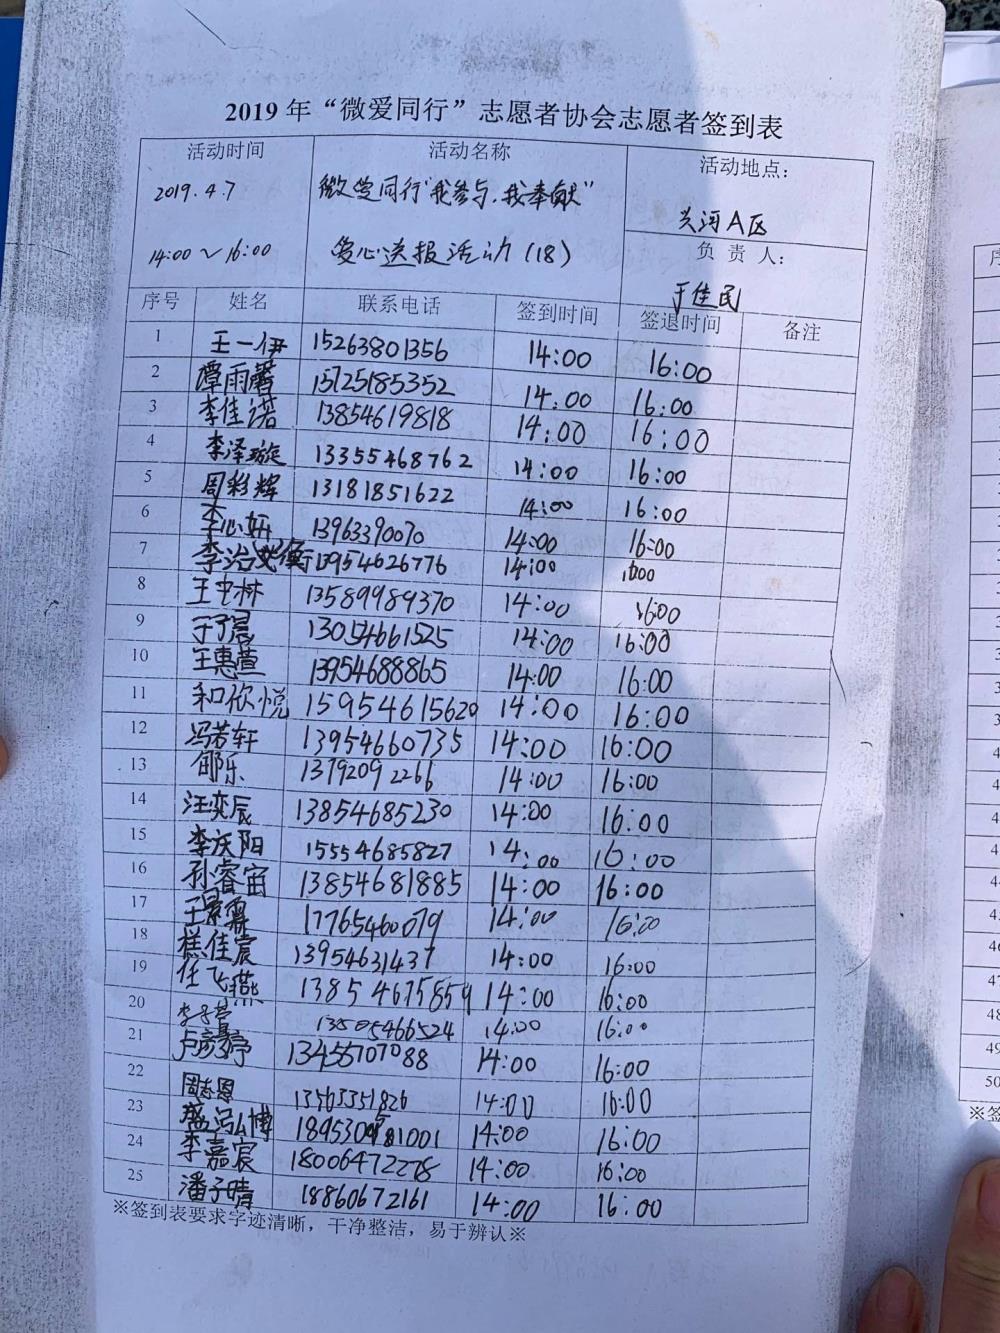 2019 年“微爱同行”志愿者协会志愿者签到表
活动时间 活动名称 活动地点：
2019.4.7 微爱同行“我参与.我奉献” 关河A区
14:00～16:00 爱心送报活动（18） 负 责 人： 于佳民
序号 姓名 联系电话 签到时间 签退时间 备注
1 王一伊 15263801356 14:00 16:00
2 谭雨馨 15725185352 14:00 16:00
3 李佳诺 13854619818 14:00 16:00
4 李泽璇 13355468762 14:00 16:00
5 周彩辉 13181851622 14:00 16:00
6 李心妍 13963390070 14:00 16:00
7 李治 衡 13954626776 14:00
8 王 林 13589989370 14:00 16:00
9 于子晨 13054661525 14:00 16:00
10 王惠萱 13954688865 14:00 16:00
11 和欣悦 15954615620 14:00 16:00
12 冯若轩 13954660735 14:00 16:00
13 邰乐 13792092266 14:00 16:00
14 汪奕辰 13854685230 14:00 16:00
15 李沃阳 15554685827 14:00 16:00
16 孙睿宙 13854681885 14:00 16:00
17 王景霖 17765460079 14:00 16:00
18 佳宸 13954631437 14:00 16:00
19 任飞燕 13854675859 14:00 16:00
20 李 13505466524 14:00 16:00
21 卢彦婷 13455707088 14:00 16:00
22 周志恩 13563351826 14:00 16:00
23 盛 博 14:00 16:00
24 李嘉宸 18006472278 14:00 16:00
25 潘子晴 18860672161 14:00 16:00
※签到表要求字迹清晰，干净整洁，易于辨认※
序
48
49
50
※签